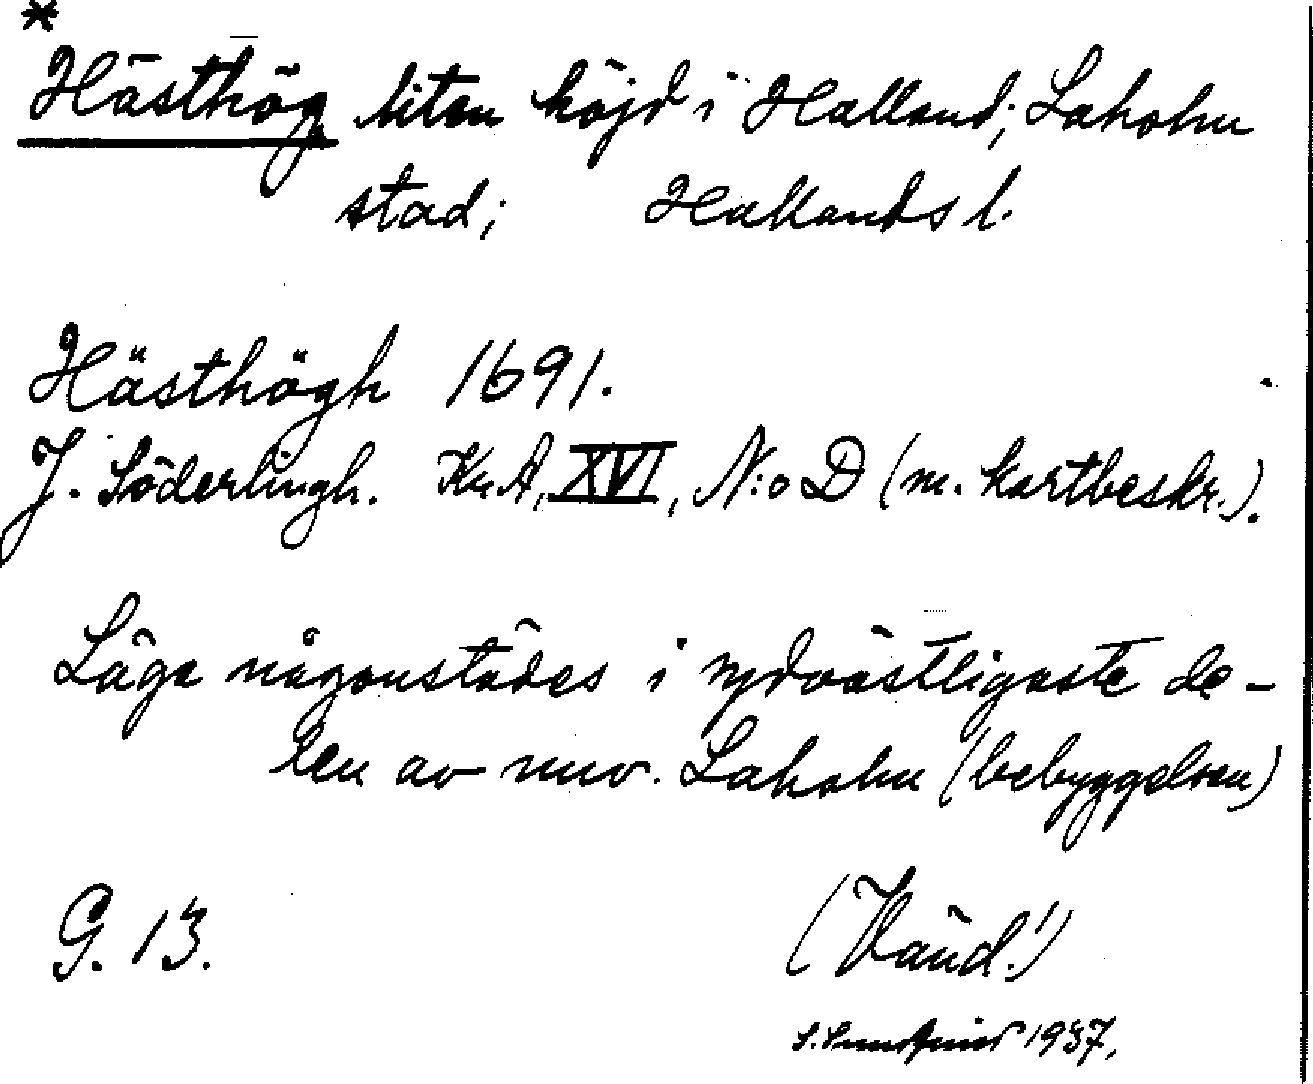 *
Hästhög liten höjd i Halland; Laholm
stad; Hallands l.
Hästhögh 1691.
J. Söderlingh. Kr.A, XVI, N:o D (m. kartbeskr.).
Läge någonstädes i sydvästligaste de-
len av nuv. Laholm (bebyggelsen)
G. 13.
(Vänd!)
S. 1937.